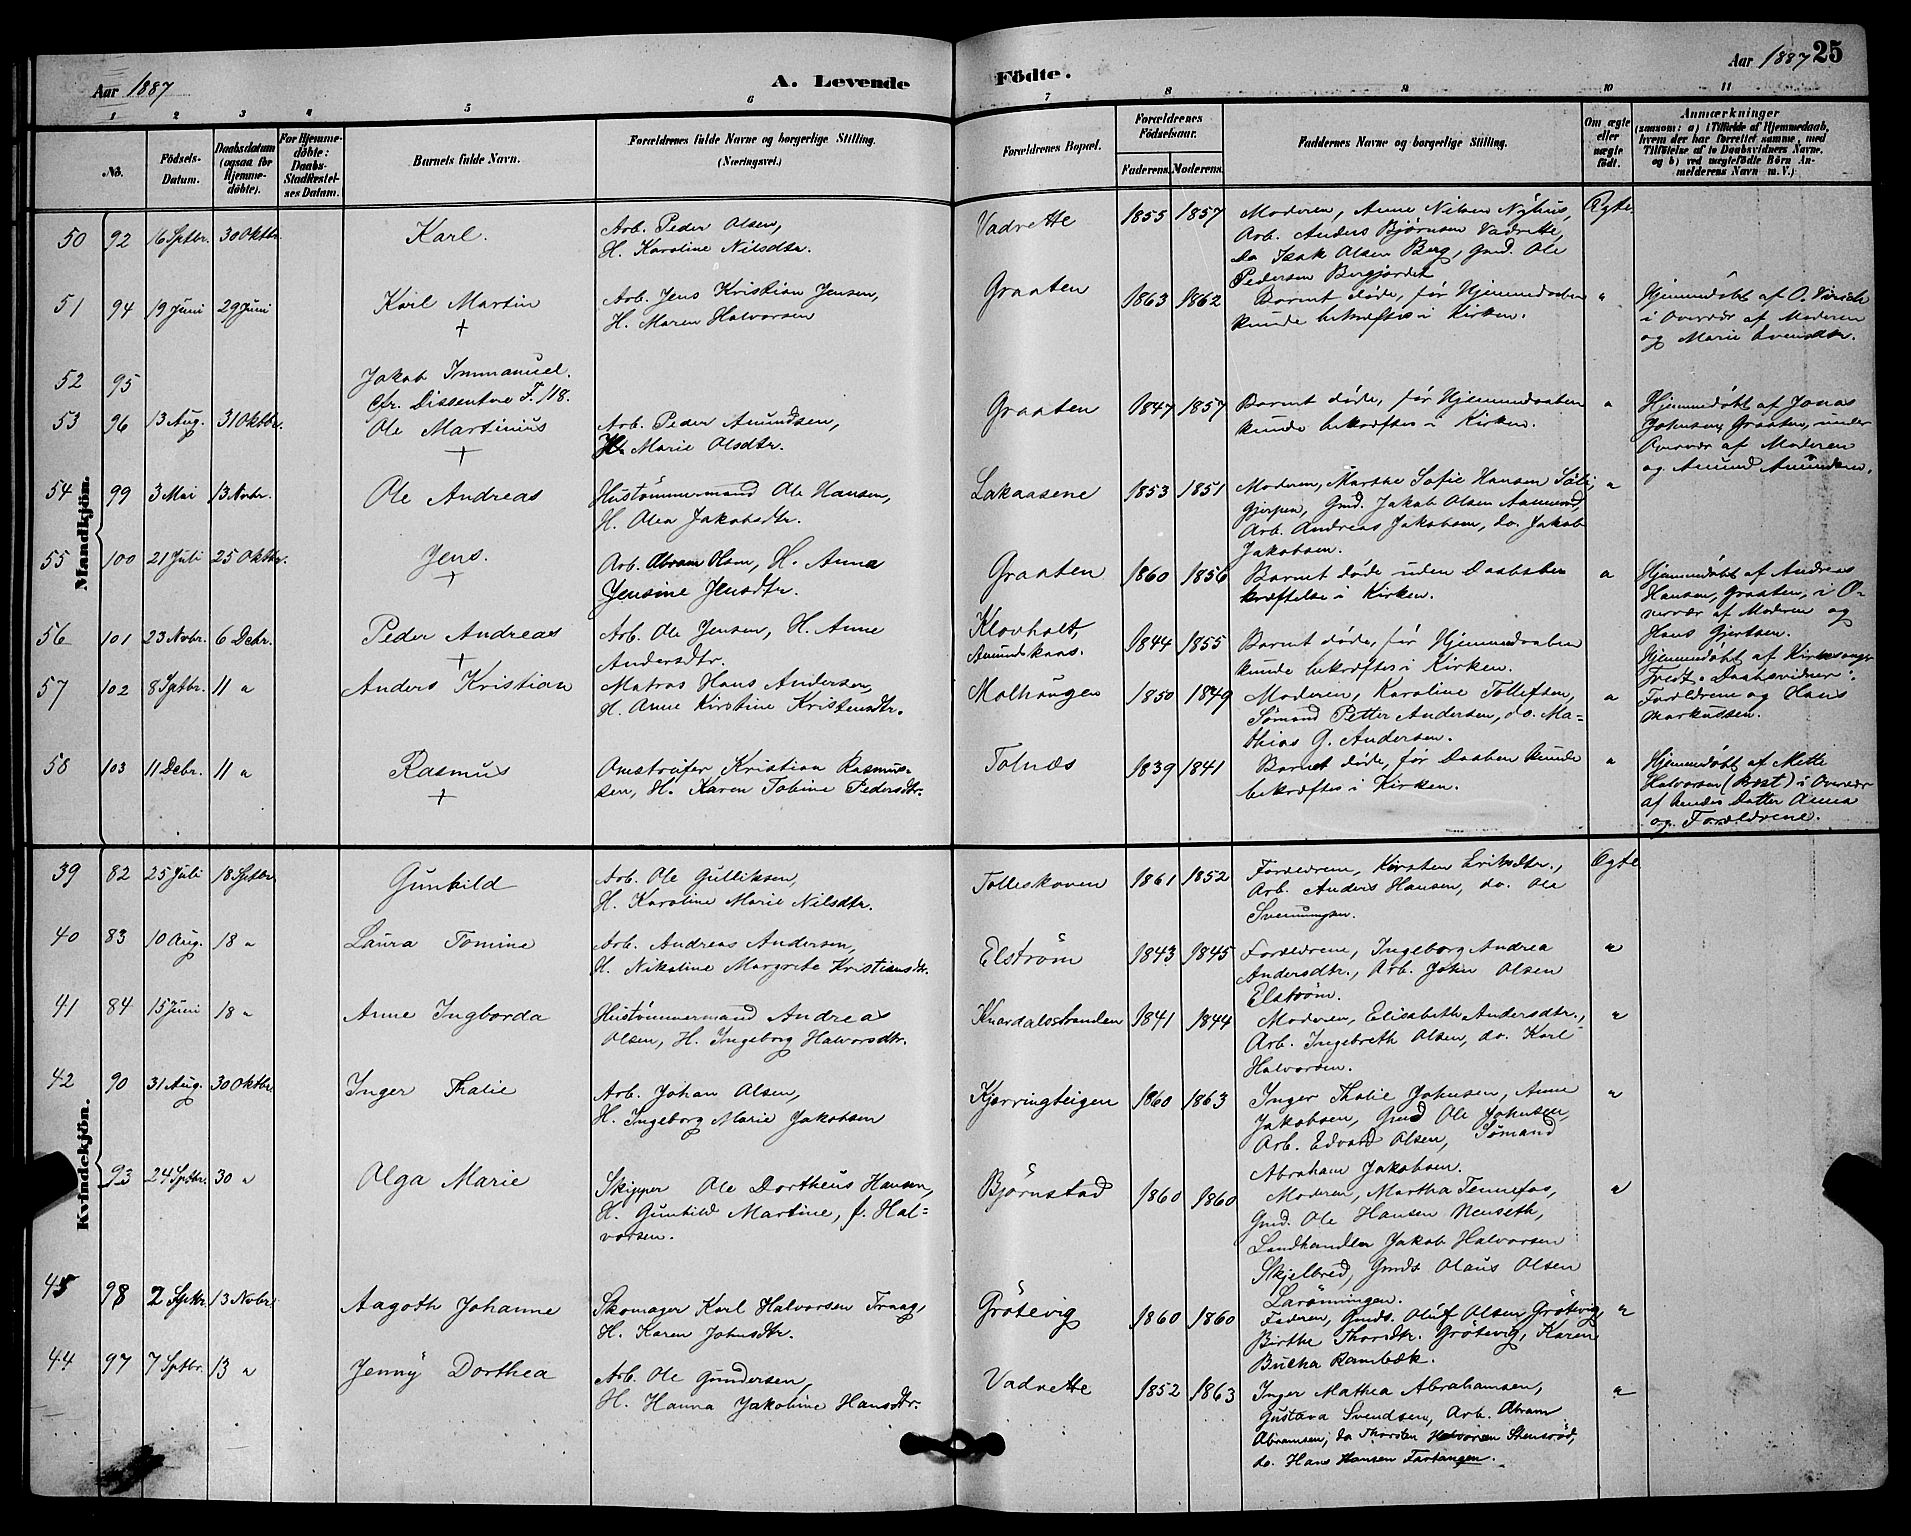 Aar 1887
A. Levende
Födte.
Aar 1887
25
1 2 3 4 5 6 7 8 9 10 11
No.
Födsels-
Datum.
Daabsdatum
(ogsaa for
Hjemme-
döbte).
For Hjemme-
döbte:
Daabs-
Stadfæstel-
ses Datum.
Barnets fulde Navn.
Forældrenes fulde Navne og borgerlige Stilling.
(Næringsvei.)
Forældrenes Bopæl.
Forældrenes
Födselsaar.
Faderens. Moderens.
Faddernes Navne og borgerlige Stilling.
Om ægte
eller
uægte
födt.
Anmærkninger
(saasom: a) i Tilfælde af Hjemmedaab,
hvem der har forrettet samme, med
Tilföielse af to Daabsvidners Navne,
og b) ved uægtefödte Börn An-
melderens Navn m. V.)
Mandkjön.
50 92 16 Sptbr. 30 Oktbr. Karl.
Arb. Peder Olsen,
H. Karoline Nilsdtr.
Vadrette 1855 1857
Moderen, Anne Nilsen Nyhus,
Arb. Anders Bjørnsen Vadrette,
do Isak Olsen Berg, Gmd. Ole
Pedersen Bergjordet
Ægte
51 94 19 Juni 29 Juni Karl Martin
+
Arb. Jens Kristian Jensen,
H. Maren Halvorsen
Graaten 1863 1862
Barnet døde, før Hjemmedaaben
kunde bekræftes i Kirken.
"
Hjemmedøbt af O.
i Overvær af Moderen
og Marie Svensdtr.
52 95
Jakob Immanuel.
Cfr. Dissentere F. 118.
53 96 13 Aug. 31 Oktbr. Ole Martinius
+
Arb. Peder Amundsen,
H. Marie Olsdtr.
Graaten 1847 1857
Barnet døde, før Hjemmedaaben
kunde bekræftes i Kirken.
"
Hjemmedøbt af Jonas
Johnsen, Graaten, under
Overvær af Moderen
og Amund Amundsen.
54 99 3 Mai 13 Novbr. Ole Andreas
Hustømmermand Ole Hansen,
H. Olea Jakobsdtr.
Lakaasene 1853 1851
Moderen, Marthe Sofie Hansen Sølie,
Gjerpen, Gmd. Jakob Olsen Aamund,
Arb. Andreas Jakobsen, do. Jakob
Jakobsen.
"
55 100 21 Juli 25 Oktbr. Jens.
+
Arb. Abram Olsen, H. Anna
Jensine Jensdtr.
Graaten 1860 1856
Barnet døde uden Daabsbe-
kræftelse i Kirken.
"
Hjemmedøbt af Andreas
Hansen, Graaten, i O-
vervær af Moderen og
Hans Gjertsen.
56 101 23 Novbr. 6 Debr. Peder Andreas
+
Arb. Ole Jensen, H. Anne
Andersdtr.
Klovholt,
Amundskaas.
1844 1855
Barnet døde, før Hjemmedaaben
kunde bekræftes i Kirken.
Hjemmedøbt af Kirkesanger
Tvedt. Daabsvidner:
Forældrene og Hans
Markussen.
57 102 8 Sptbr. 11 " Anders Kristian
Matros Hans Andersen,
H. Anne Kirstine Kristensdtr.
Molhaugen 1850 1849
Moderen, Karoline Tollefsen,
Sømand Petter Andersen, do. Ma-
thias G. Andersen.
"
58 103 11 Debr. 11 " Rasmus
+
Omstreifer Kristian Rasmus-
sen, H. Karen Tobine Pedersdtr.
Tolnæs 1839 1841
Barnet døde, før Daaben kunde
bekræftes i Kirken.
"
Hjemmedøbt af Mette
Halvorsen (Røst) i Overvær
af hendes Datter Anna
og Forældrene.
Kvindekjön.
39 82 25 Juli 18 Sptbr. Gunhild
Arb. Ole Gulliksen,
H. Karoline Marie Nilsdtr.
Tolleskoven 1861 1852
Forældrene, Kirsten Eriksdtr.,
Arb. Anders Hansen, do. Ole
Svenungsen.
Ægte
40 83 10 Aug. 18 " Laura Tomine
Arb. Andreas Andersen,
H. Nikoline Margrete Kristiansdtr.
Elstrøm 1843 1845
Forældrene, Ingeborg Andrea
Andersdtr., Arb. John Olsen
Elstrøm.
"
41 84 15 Juni 18 " Anne Ingborda
Hustømmermand Andreas
Olsen, H. Ingeborg Halvorsdtr.
Knardalsstranden 1841 1844
Moderen, Elisabeth Andersdtr.,
Arb. Ingebreth Olsen, do. Karl
Halvorsen.
"
42 90 31 Aug. 30 Oktbr. Inger Thalie
Arb. Johan Olsen,
H. Ingeborg Marie Jakobsen
Kjerringteigen 1860 1863
Inger Thalie Johnsen, Anne
Jakobsen, Gmd Ole Johnsen,
Arb. Edvard Olsen, Sømand
Abraham Jakobsen.
"
93 24 Sptbr. 30 " Olga Marie
Skipper Ole Dortheus Hansen,
H. Gunhild Martine, f. Hal-
vorsen.
Bjørnstad 1860 1860
Moderen, Martha Tennefos,
Gmd. Ole Hansen Nenseth,
Landhandler Jakob Halvorsen
Skjelbred, Gmds. Olaus Olsen
Larønningen.
"
45 98 2 Sptbr. 13 Novbr. Aagoth Johanne
Skomager Karl Halvorsen Traag,
H. Karen Johnsdtr.
Grøtevig 1860 1860
Faderen, Gmds. Oluf Olsen Grøtevig,
Birthe Thorsdtr. Grøtevig, Karen
Bucha Rambæk.
"
44 97 7 Sptbr. 13 " Jenny Dorthea
Arb. Ole Gundersen,
H. Hanna Jakobine Hansdtr.
Vadrette 1852 1863
Inger Mathea Abrahamsen,
Gustava Svendsen, Arb. Abram
Abramsen, do Thorsten Halvorsen Stensrød,
do. Hans Hansen Fartangen.
"